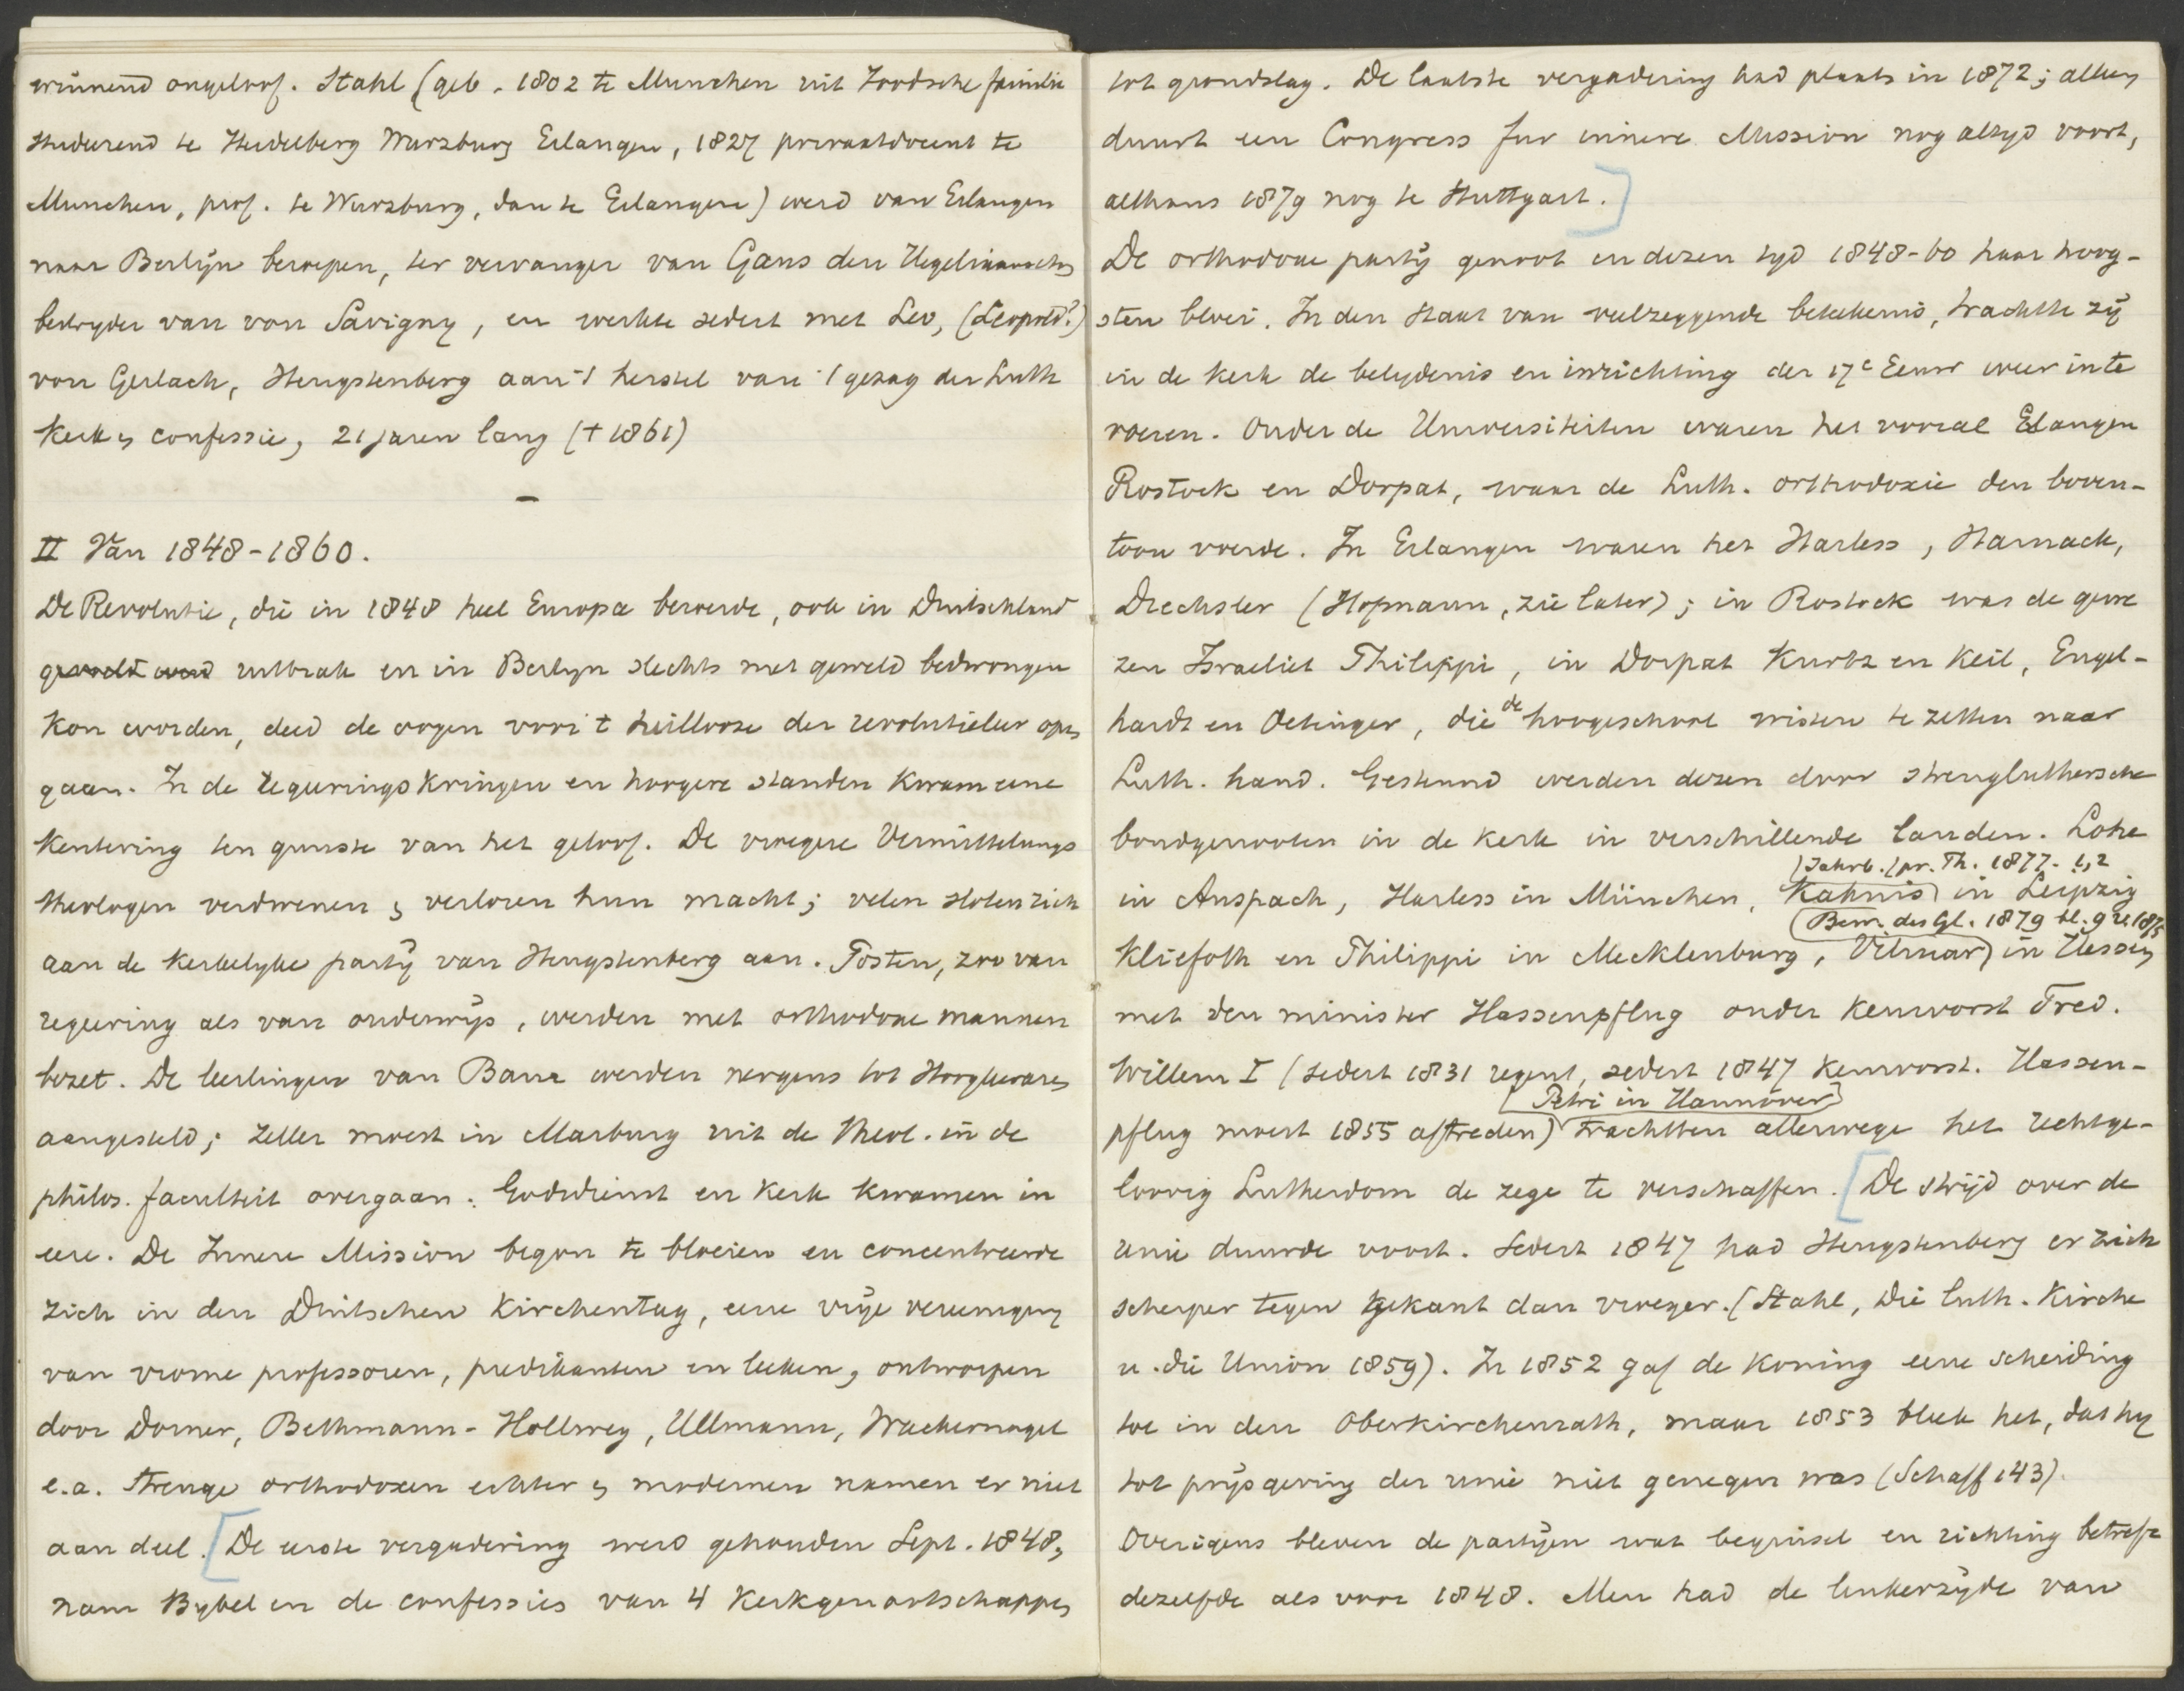 winnend ongeloof. Stahl (geb. 1802 te Munchen uit Joodsche familie
studeerend te Heidelberg Wurzburg Erlangen, 1827 privaatdocent te
Munchen, prof. te Wurzburg, dan te Erlangen) werd van Erlangen
naar Berlijn beroepen, ter vervanger van Gans den Hegeliaanschen
bestryder van von Savigny, en werkte sedert met Leo, (Leopold?)
von Gerlach, Hengstenberg aan 't herstel van 't gezag der Luth
Kerk en confessie, 21 jaren lang († 1861)
—
II Van 1848-1860.
De Revolutie, die in 1848 heel Europa beroerde, ook in Duitschland
uitbrak en in Berlyn slechts met geweld bedwongen
kon worden, deed de oogen voor 't heillooze der revolutieleer open
gaan. In de regeeringskringen en hoogere standen kwam eene
kentering ten gunste van het geloof. De vroegere Vermittelungs
theologen verdwenen en verloren hun macht; velen sloten zich
aan de kerkelyke partÿ van Hengstenberg aan. Posten, zoo van
regeering als van onderwÿs, werden met orthodoxe mannen
bezet. De leerlingen van Baur werden nergens tot Hoogleeraren
aangesteld; Zeller moest in Marburg uit de theol. in de
philos. faculteit overgaan. Godsdienst en Kerk kwamen in
eere. De Innere Mission begon te bloeien en concentreerde
zich in den Duitschen Kirchentag, eene vrÿe vereeniging
van vrome professoren, predikanten en leeken, ontworpen
door Dorner, Bethmann-Hollweg, Ullmann, Wackernagel
e.a. Strenge orthodoxen echter en modernen namen er niet
aan deel. [De eerste vergadering werd gehouden Sept. 1848,
nam Bybel en de confessies van 4 Kerkgenootschappen
tot grondslag. De laatste vergadering had plaats in 1872; alleen
duurt een Congress fur innere Mission nog altyd voort,
althans 1879 nog te Stuttgart.]
De orthodoxe partÿ genoot in dezen tyd 1848-60 haar hoog-
sten bloei. In den Staat van veelzeggende beteekenis, trachtte zÿ
in de kerk de belydenis en inrichting der 17e Eeuw weer in te
voeren. Onder de Universiteiten waren het vooral Erlangen
Rostock en Dorpat, waar de Luth. orthodoxie den boven-
toon voerde. In Erlangen waren het Harless, Harnack,
Drechsler (Hofmann, zie later); in Rostock was de gewe
zen Israeliet Philippi, in Dorpat Kurtz en Keil, Engel-
hardt en Oetinger, die de hoogeschool wisten te zetten naar
Luth. hand. Gesteund werden dezen door strengluthersche
bondgenooten in de kerk in verschillende landen. Löhe
(Jahrb. f pr. Th. 1877. 1,2
in Anspach, Harless in München, Kahnis) in Leipzig
(Bew. des Gl. 1879 bl. 9 1875
Kliefoth en Philippi in Mecklenburg, Vilmar) in Hessen
met den minister Hassenpflug onder keurvorst Fred.
Willem I (sedert 1831 regent, sedert 1847 keurvorst. Hassen-
[Petri in Hannover]
pflug moest 1855 aftreden) trachtten allerwege het rechtge-
loovig Lutherdom de zege te verschaffen. [De strÿd over de
unie duurde voort. Sedert 1847 had Hengstenberg er zich
scherper tegen gekant dan vroeger. (Stahl, Die luth. Kirche
u. die Union 1859). In 1852 gaf de Koning eene scheiding
toe in den Oberkirchenrath, maar 1853 bleek het, dat hy
tot prÿsgeving der unie niet genegen was (Schaff 143).
Overigens bleven de partÿen wat beginsel en richting betreft
dezelfde als voor 1848. Men had de linkerzÿde van